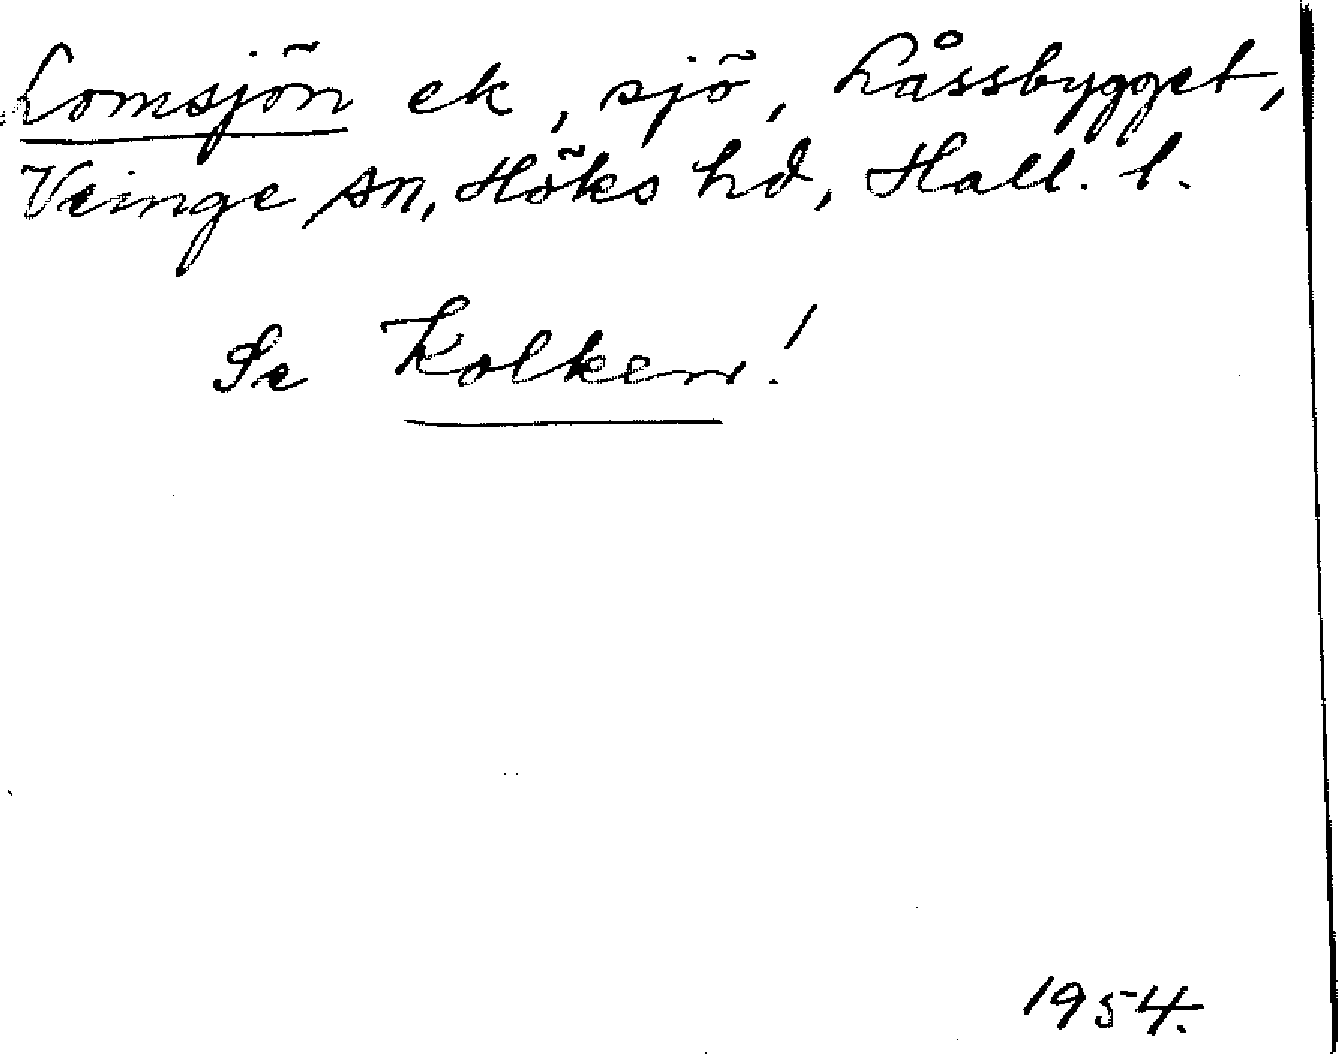 Lomsjön ek, sjö, Låssbygget,
Veinge sn, Höks hd, Hall. l.
Se Kolken!
1954.